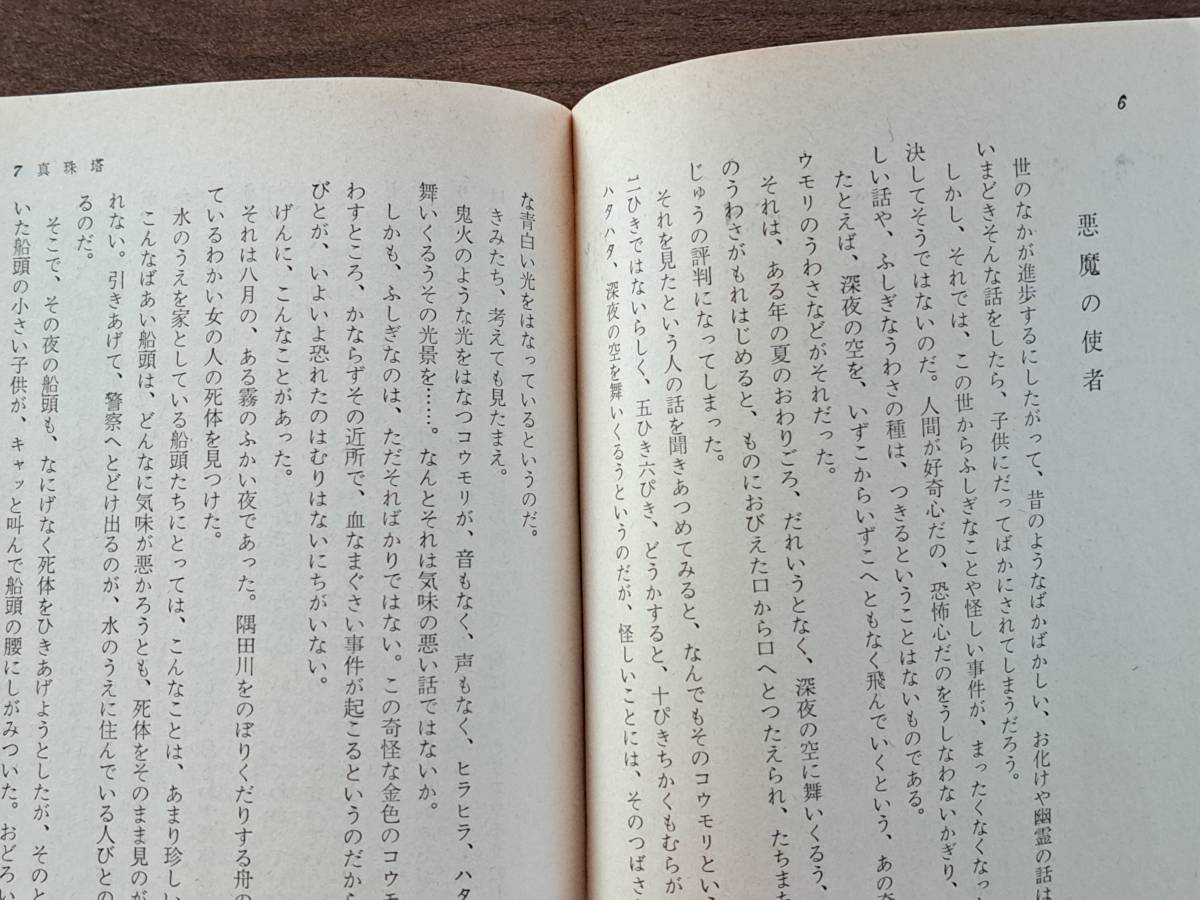 6
悪魔の使者
世のなかが進歩するにしたがって、昔のようなばかばかしい、お化けや幽霊の話は
いまどきそんな話をしたら、子供にだってばかにされてしまうだろう。
しかし、それでは、この世からふしぎなことや怪しい事件が、まったくなくなっ
決してそうではないのだ。人間が好奇心だの、恐怖心だのをうしなわないかぎり、
しい話や、ふしぎなうわさの種は、つきるということはないものである。
たとえば、深夜の空を、いずこからいずこへともなく飛んでいくという、あの奇
ウモリのうわさなどがそれだった。
それは、ある年の夏のおわりごろ、だれいうとなく、深夜の空に舞いくるう、
のうわさがもれはじめると、ものにおびえた口から口へとつたえられ、たちまち
じゅうの評判になってしまった。
それを見たという人の話を聞きあつめてみると、なんでもそのコウモリとい、
二ひきではないらしく、五ひき六ぴき、どうかすると、十ぴきちかくもむらが
ハタハタ、深夜の空を舞いくるうというのだが、怪しいことには、そのつばさ
7 真珠塔
な青白い光をはなっているというのだ。
きみたち、考えても見たまえ。
鬼火のような光をはなつコウモリが、音もなく、声もなく、ヒラヒラ、ハタ
舞いくるうその光景を……。なんとそれは気味の悪い話ではないか。
しかも、ふしぎなのは、ただそればかりではない。この奇怪な金色のコウモ
わすところ、かならずその近所で、血なまぐさい事件が起こるというのだから
びとが、いよいよ恐れたのはむりはないにちがいない。
げんに、こんなことがあった。
それは八月の、ある霧のふかい夜であった。隅田川をのぼりくだりする舟の
ているわかい女の人の死体を見つけた。
水のうえを家としている船頭たちにとっては、こんなことは、あまり珍しい
こんなばあい船頭は、どんなに気味が悪かろうとも、死体をそのまま見のが
れない。引きあげて、警察へとどけ出るのが、水のうえに住んでいる人びとの
るのだ。
そこで、その夜の船頭も、なにげなく死体をひきあげようとしたが、そのと
いた船頭の小さい子供が、キャッと叫んで船頭の腰にしがみついた。おどろい